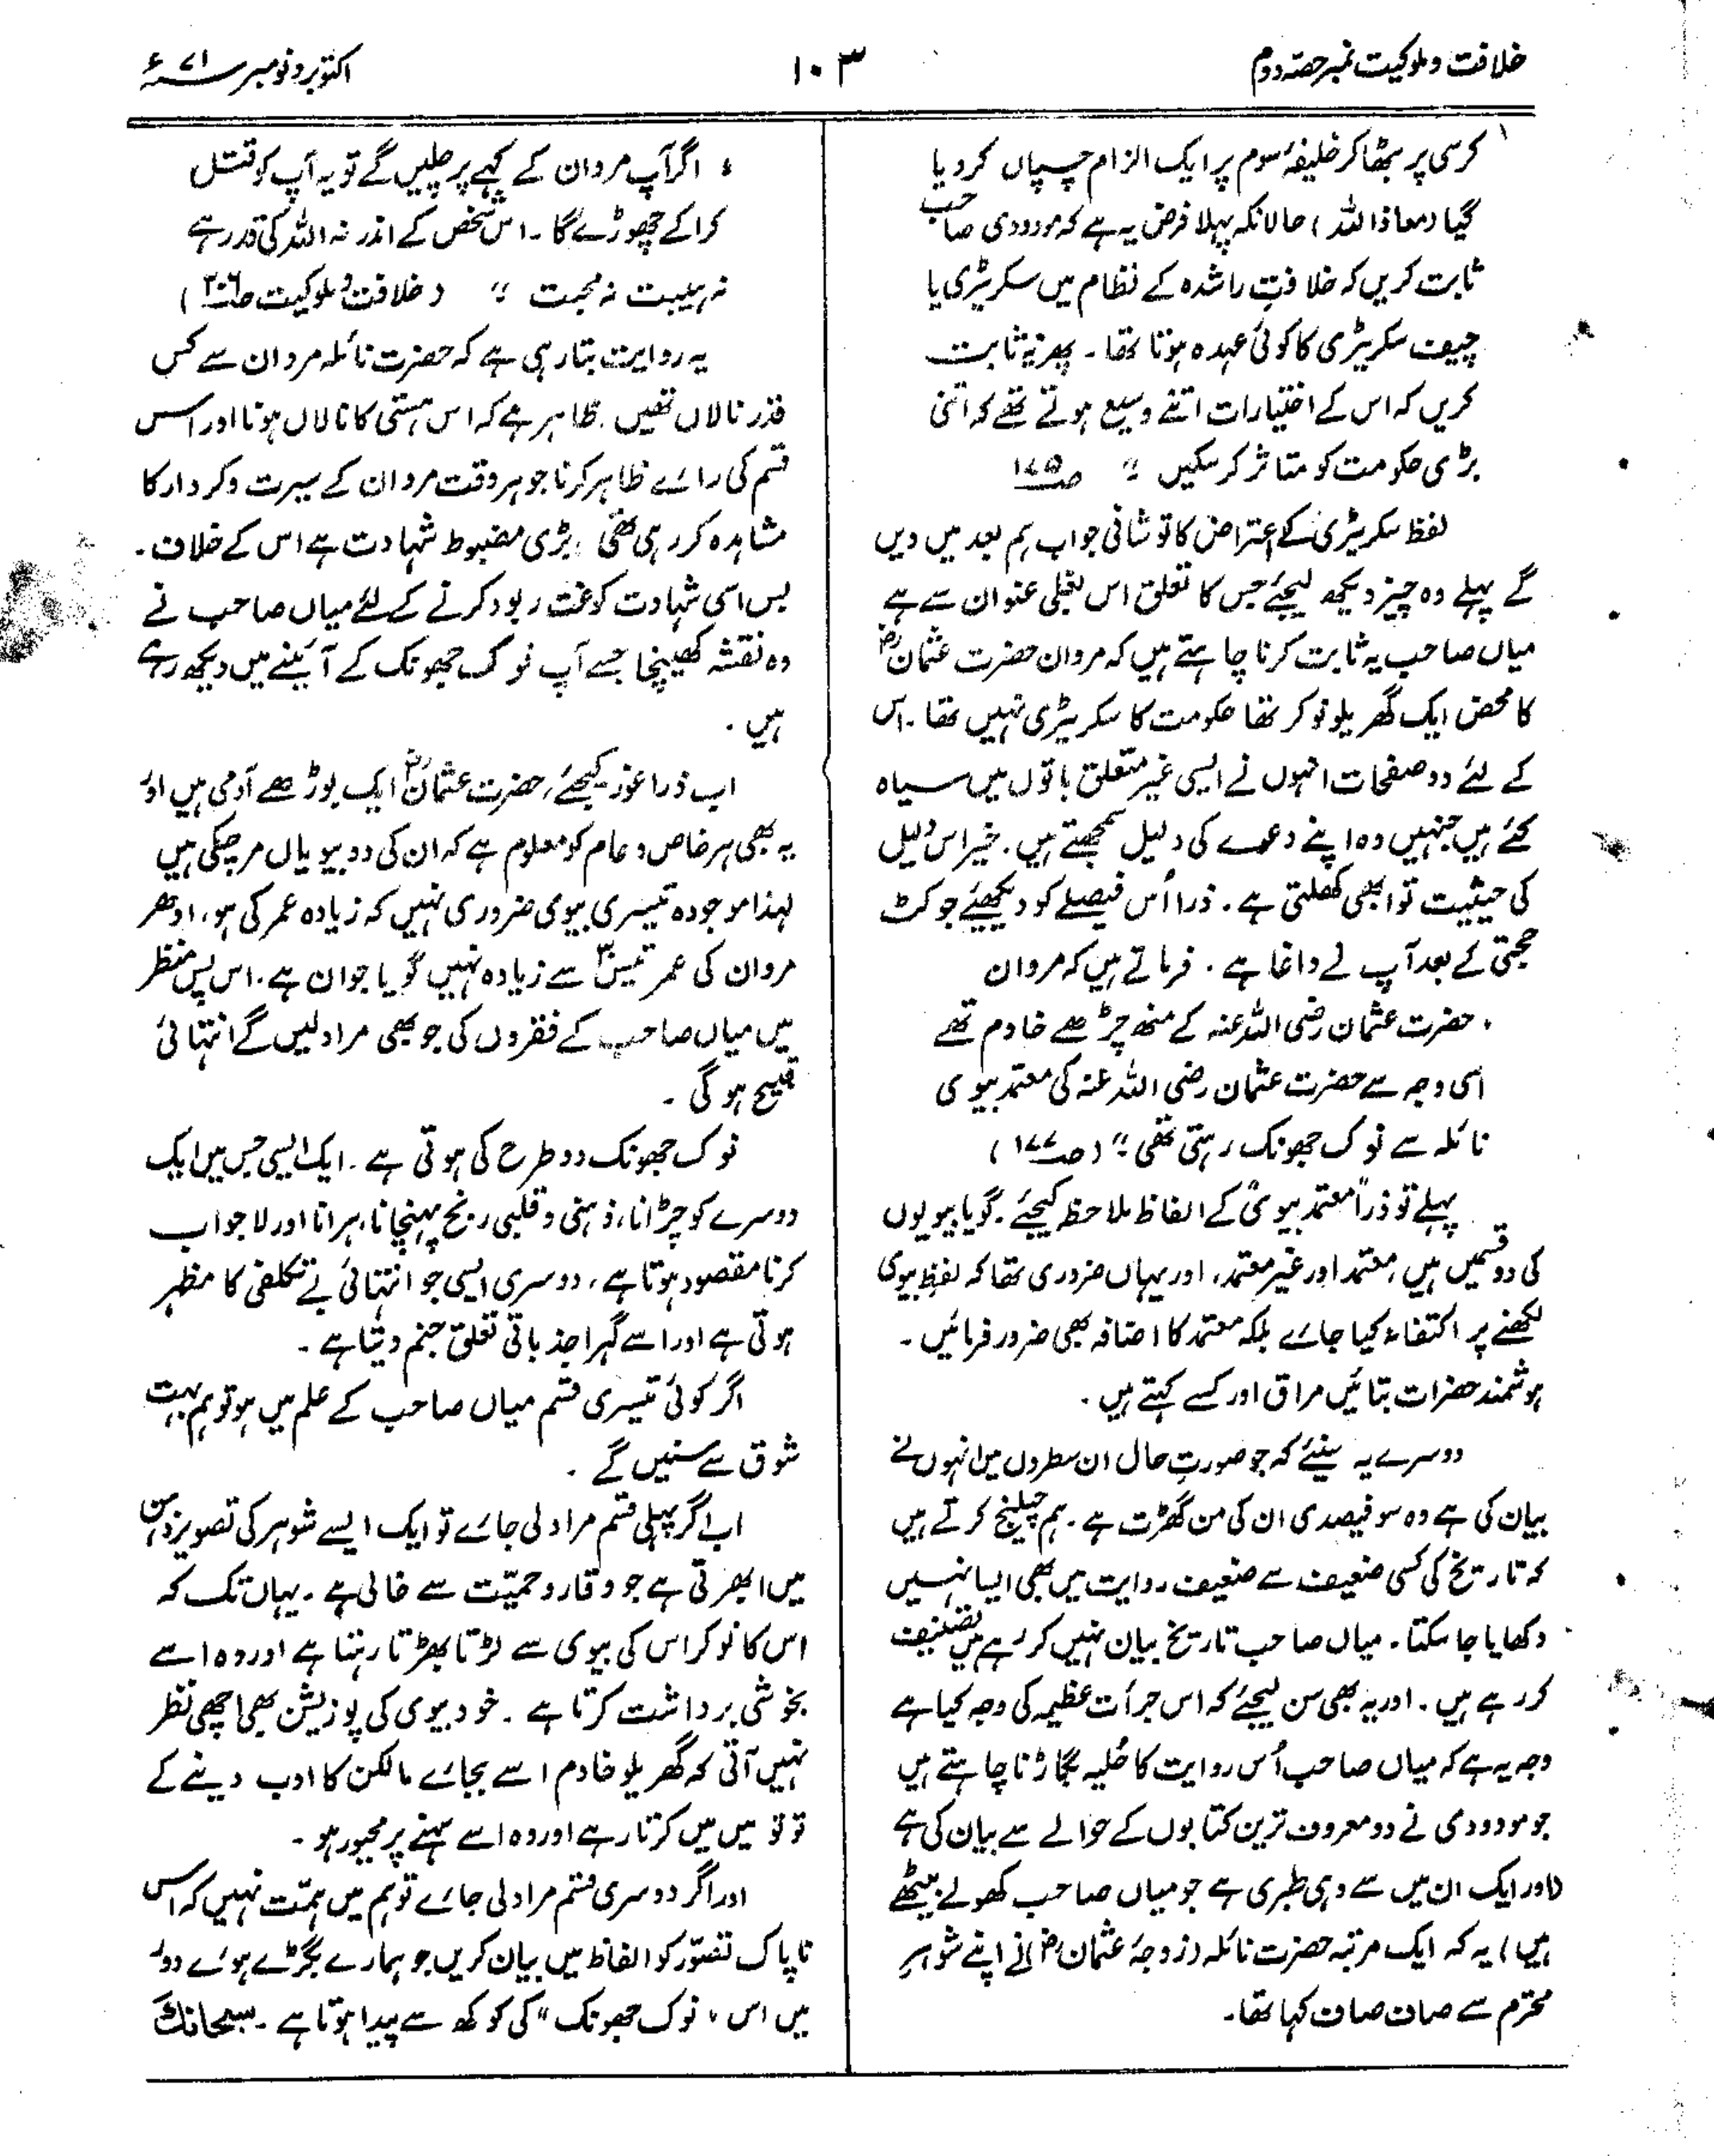 خلافت و ملوکیت نمبر حصہ دوم
۱۰۳
اکتوبر و نومبر ۷۱ء
کرسی پر بٹھا کر خلیفۂ سوم پر ایک الزام چسپاں کر دیا
گیا (معاذ اللہ) حالانکہ پہلا فرض یہ ہے کہ مودودی صاحب
ثابت کریں کہ خلافتِ راشدہ کے نظام میں سکریٹری یا
چیف سکریٹری کا کوئی عہدہ ہوتا تھا۔ پھر یہ ثابت
کریں کہ اس کے اختیارات اتنے وسیع ہوتے تھے کہ اتنی
بڑی حکومت کو متاثر کر سکیں" ص۱۷۵
لفظ سکریٹری کے اعتراض کا تو شافی جواب ہم بعد میں دیں
گے پہلے وہ چیز دیکھ لیجئے جس کا تعلق اس بغلی عنوان سے ہے
میاں صاحب یہ ثابت کرنا چاہتے ہیں کہ مروان حضرت عثمانؓ
کا محض ایک گھریلو نوکر تھا حکومت کا سکریٹری نہیں تھا۔ اس
کے لئے دو صفحات انہوں نے ایسی غیر متعلق باتوں میں سیاہ
کئے ہیں جنہیں وہ اپنے دعوے کی دلیل سمجھتے ہیں۔ خیر اس دلیل
کی حیثیت تو ابھی کھلتی ہے۔ ذرا اُس فیصلے کو دیکھئے جو کٹ
حجتی کے بعد آپ نے داغا ہے۔ فرماتے ہیں کہ مروان
"حضرت عثمان رضی اللہ عنہ کے منہ چڑھے خادم تھے
اسی وجہ سے حضرت عثمان رضی اللہ عنہ کی معتمد بیوی
نائلہ سے نوک جھونک رہتی تھی" (ص۱۷۷)
پہلے تو ذرا "معتمد بیوی" کے الفاظ ملاحظہ کیجئے۔ گویا بیویوں
کی دو قسمیں ہیں، معتمد اور غیر معتمد، اور یہاں ضروری تھا کہ لفظِ بیوی
لکھنے پر اکتفاء نہ کیا جائے بلکہ معتمد کا اضافہ بھی ضرور فرمائیں۔
ہوشمند حضرات بتائیں مراق اور کسے کہتے ہیں۔
دوسرے یہ سنیئے کہ جو صورتِ حال ان سطروں میں انہوں نے
بیان کی ہے وہ سو فیصدی ان کی من گھڑت ہے۔ ہم چیلنج کرتے ہیں
کہ تاریخ کی کسی ضعیف سے ضعیف روایت میں بھی ایسا نہیں
دکھایا جا سکتا۔ میاں صاحب تاریخ بیان نہیں کر رہے ہیں تصنیف
کر رہے ہیں۔ اور یہ بھی سن لیجئے کہ اس جرأت عظیمہ کی وجہ کیا ہے
وجہ یہ ہے کہ میاں صاحب اُس روایت کا حُلیہ بگاڑنا چاہتے ہیں
جو مودودی نے دو معروف ترین کتابوں کے حوالے سے بیان کی ہے
(اور ایک ان میں سے وہی طبری ہے جو میاں صاحب کھولے بیٹھے
ہیں) یہ کہ ایک مرتبہ حضرت نائلہ (زوجۂ عثمانؓ) نے اپنے شوہرِ
محترم سے صاف صاف کہا تھا۔
"اگر آپ مروان کے کہے پر چلیں گے تو یہ آپ کو قتل
کرا کے چھوڑے گا۔ اس شخص کے اندر نہ اللہ کی قدر ہے
نہ ہیبت نہ محبت" (خلافت و ملوکیت ص۳۰۶)
یہ روایت بتا رہی ہے کہ حضرت نائلہ مروان سے کس
قدر نالاں تھیں۔ ظاہر ہے کہ اس ہستی کا نالاں ہونا اور اس
قسم کی رائے ظاہر کرنا جو ہر وقت مروان کے سیرت و کردار کا
مشاہدہ کر رہی تھی، بڑی مضبوط شہادت ہے اس کے خلاف۔
بس اسی شہادت کو غت ربود کرنے کے لئے میاں صاحب نے
وہ نقشہ کھینچا جسے آپ نوک جھونک کے آئینے میں دیکھ رہے
ہیں۔
اب ذرا غور کیجئے، حضرت عثمانؓ ایک بوڑھے آدمی ہیں اور
یہ بھی ہر خاص و عام کو معلوم ہے کہ ان کی دو بیویاں مر چکی ہیں
لہذا موجودہ تیسری بیوی ضروری نہیں کہ زیادہ عمر کی ہو، ادھر
مروان کی عمر تیس سے زیادہ نہیں گویا جوان ہے۔ اس پس منظر
میں میاں صاحب کے فقروں کی جو بھی مراد لیں گے انتہائی
قبیح ہو گی۔
نوک جھونک دو طرح کی ہوتی ہے۔ ایک ایسی جس میں ایک
دوسرے کو چڑانا، ذہنی و قلبی رنج پہنچانا، ہرانا اور لاجواب
کرنا مقصود ہوتا ہے، دوسری ایسی جو انتہائی بے تکلفی کا مظہر
ہوتی ہے اور اسے گہرا جذباتی تعلق جنم دیتا ہے۔
اگر کوئی تیسری قسم میاں صاحب کے علم میں ہو تو ہم بہت
شوق سے سنیں گے۔
اب اگر پہلی قسم مراد لی جائے تو ایک ایسے شوہر کی تصویر ذہن
میں ابھرتی ہے جو وقار و حمیّت سے خالی ہے۔ یہاں تک کہ
اس کا نوکر اس کی بیوی سے لڑتا بھڑتا رہتا ہے اور وہ اسے
بخوشی برداشت کرتا ہے۔ خود بیوی کی پوزیشن بھی اچھی نظر
نہیں آتی کہ گھریلو خادم اسے بجائے مالکن کا ادب دینے کے
تو تو میں میں کرتا رہے اور وہ اسے سہنے پر مجبور ہو۔
اور اگر دوسری قسم مراد لی جائے تو ہم میں ہمّت نہیں کہ اس
ناپاک تصوّر کو الفاظ میں بیان کریں جو ہمارے بگڑے ہوئے دور
میں اس "نوک جھونک" کی کوکھ سے پیدا ہوتا ہے۔ سبحانک